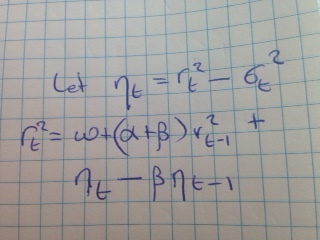 Let η_t = r_t^2 − σ_t^2
r_t^2 = ω+(α+β) r_{t-1}^2 +
η_t − β η_{t-1}